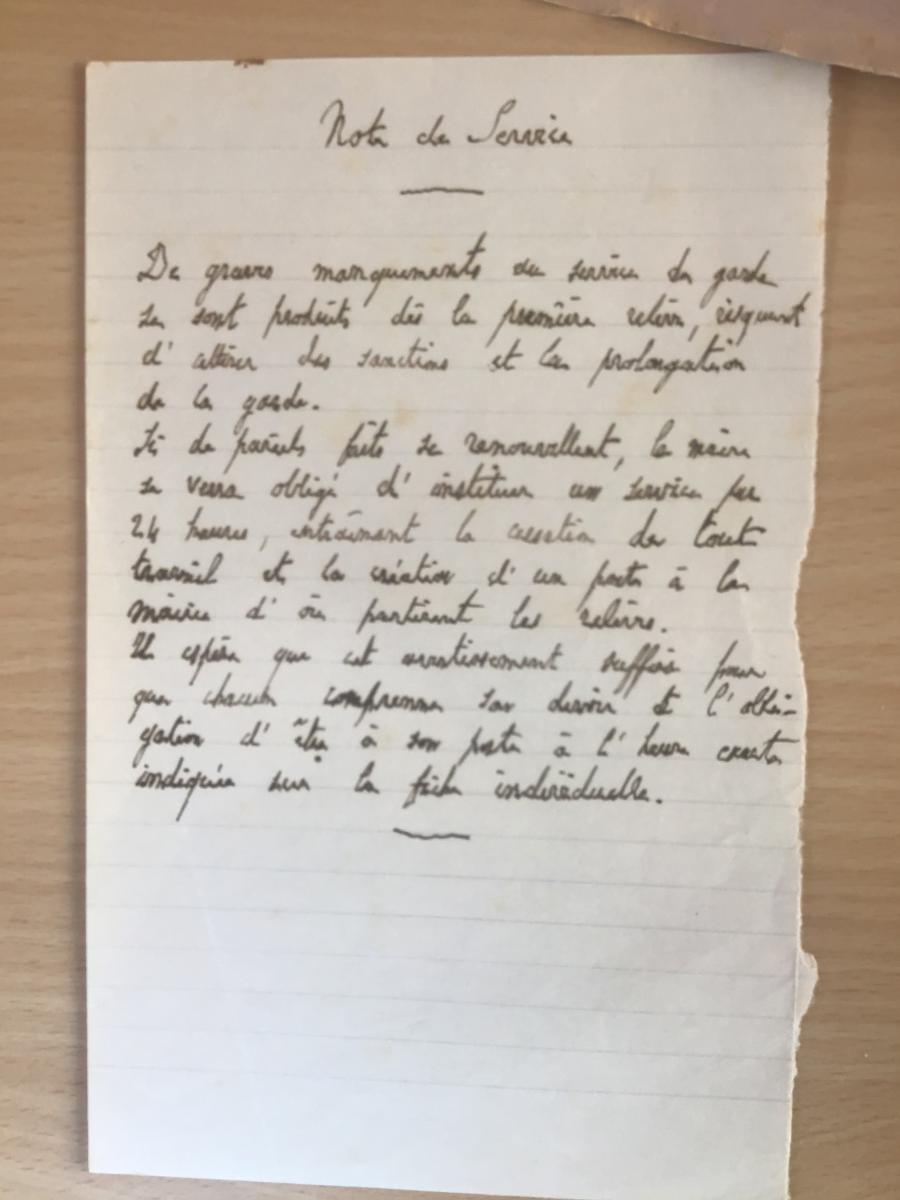 Note de Service
De graves manquements au service de garde
se sont produits dès la première relève, risquant
d'attirer des sanctions et la prolongation
de la garde.
Si de pareils faits se renouvellent, le maire
se verra obligé d'instituer un service par
24 heures, entraînant la cessation de tout
travail et la création d'un poste à la
mairie d'où partiront les relèves.
Il espère que cet avertissement suffira pour
que chacun comprenne son devoir et l'obli-
gation d'être à son poste à l'heure exacte
indiquée sur la fiche individuelle.